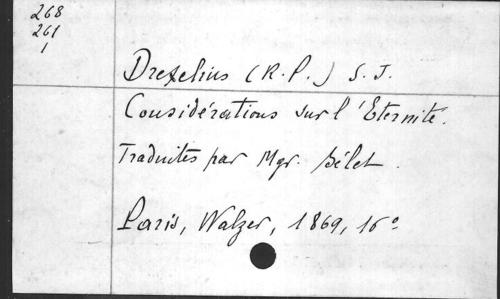 268
261
1
Drexelius (R.P.) S.J.
Considérations sur l'Eternité.
Traduites par Mgr. Bélet.
Paris, Walzer, 1869, 16°